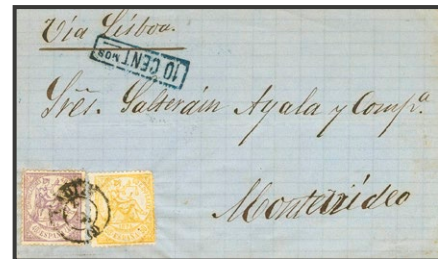 Vía Lisboa.
10 CENTMOS
Sres. Salteráin Ayala y Compa.
Montevideo